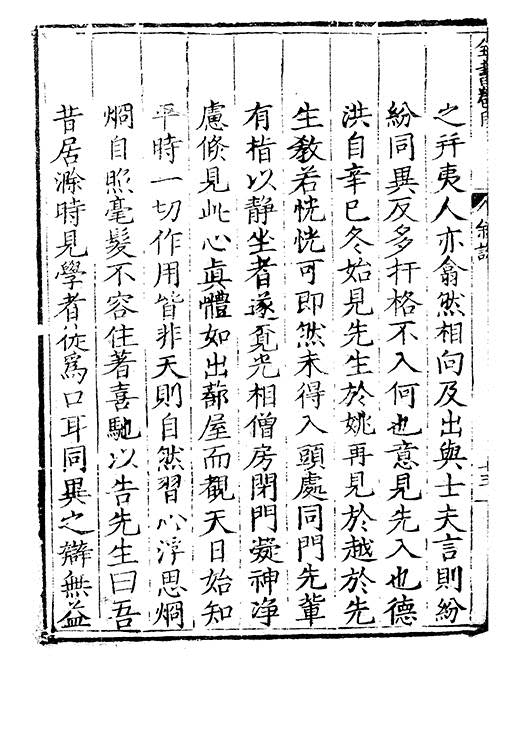 全書卷
敘說
之并夷人亦翕然相向及出與士夫言則紛
紛同異反多扞格不入何也意見先入也德
洪自辛巳冬始見先生於姚再見於越於先
生教若恍恍可即然未得入頭處同門先輩
有指以静坐者遂覓光相僧房閉門凝神净
慮倏見此心真體如出蔀屋而覩天日始知
平時一切作用皆非天則自然習心浮思炯
炯自照毫髮不容住著喜馳以告先生曰吾
昔居滁時見學者徒爲口耳同異之辯無益